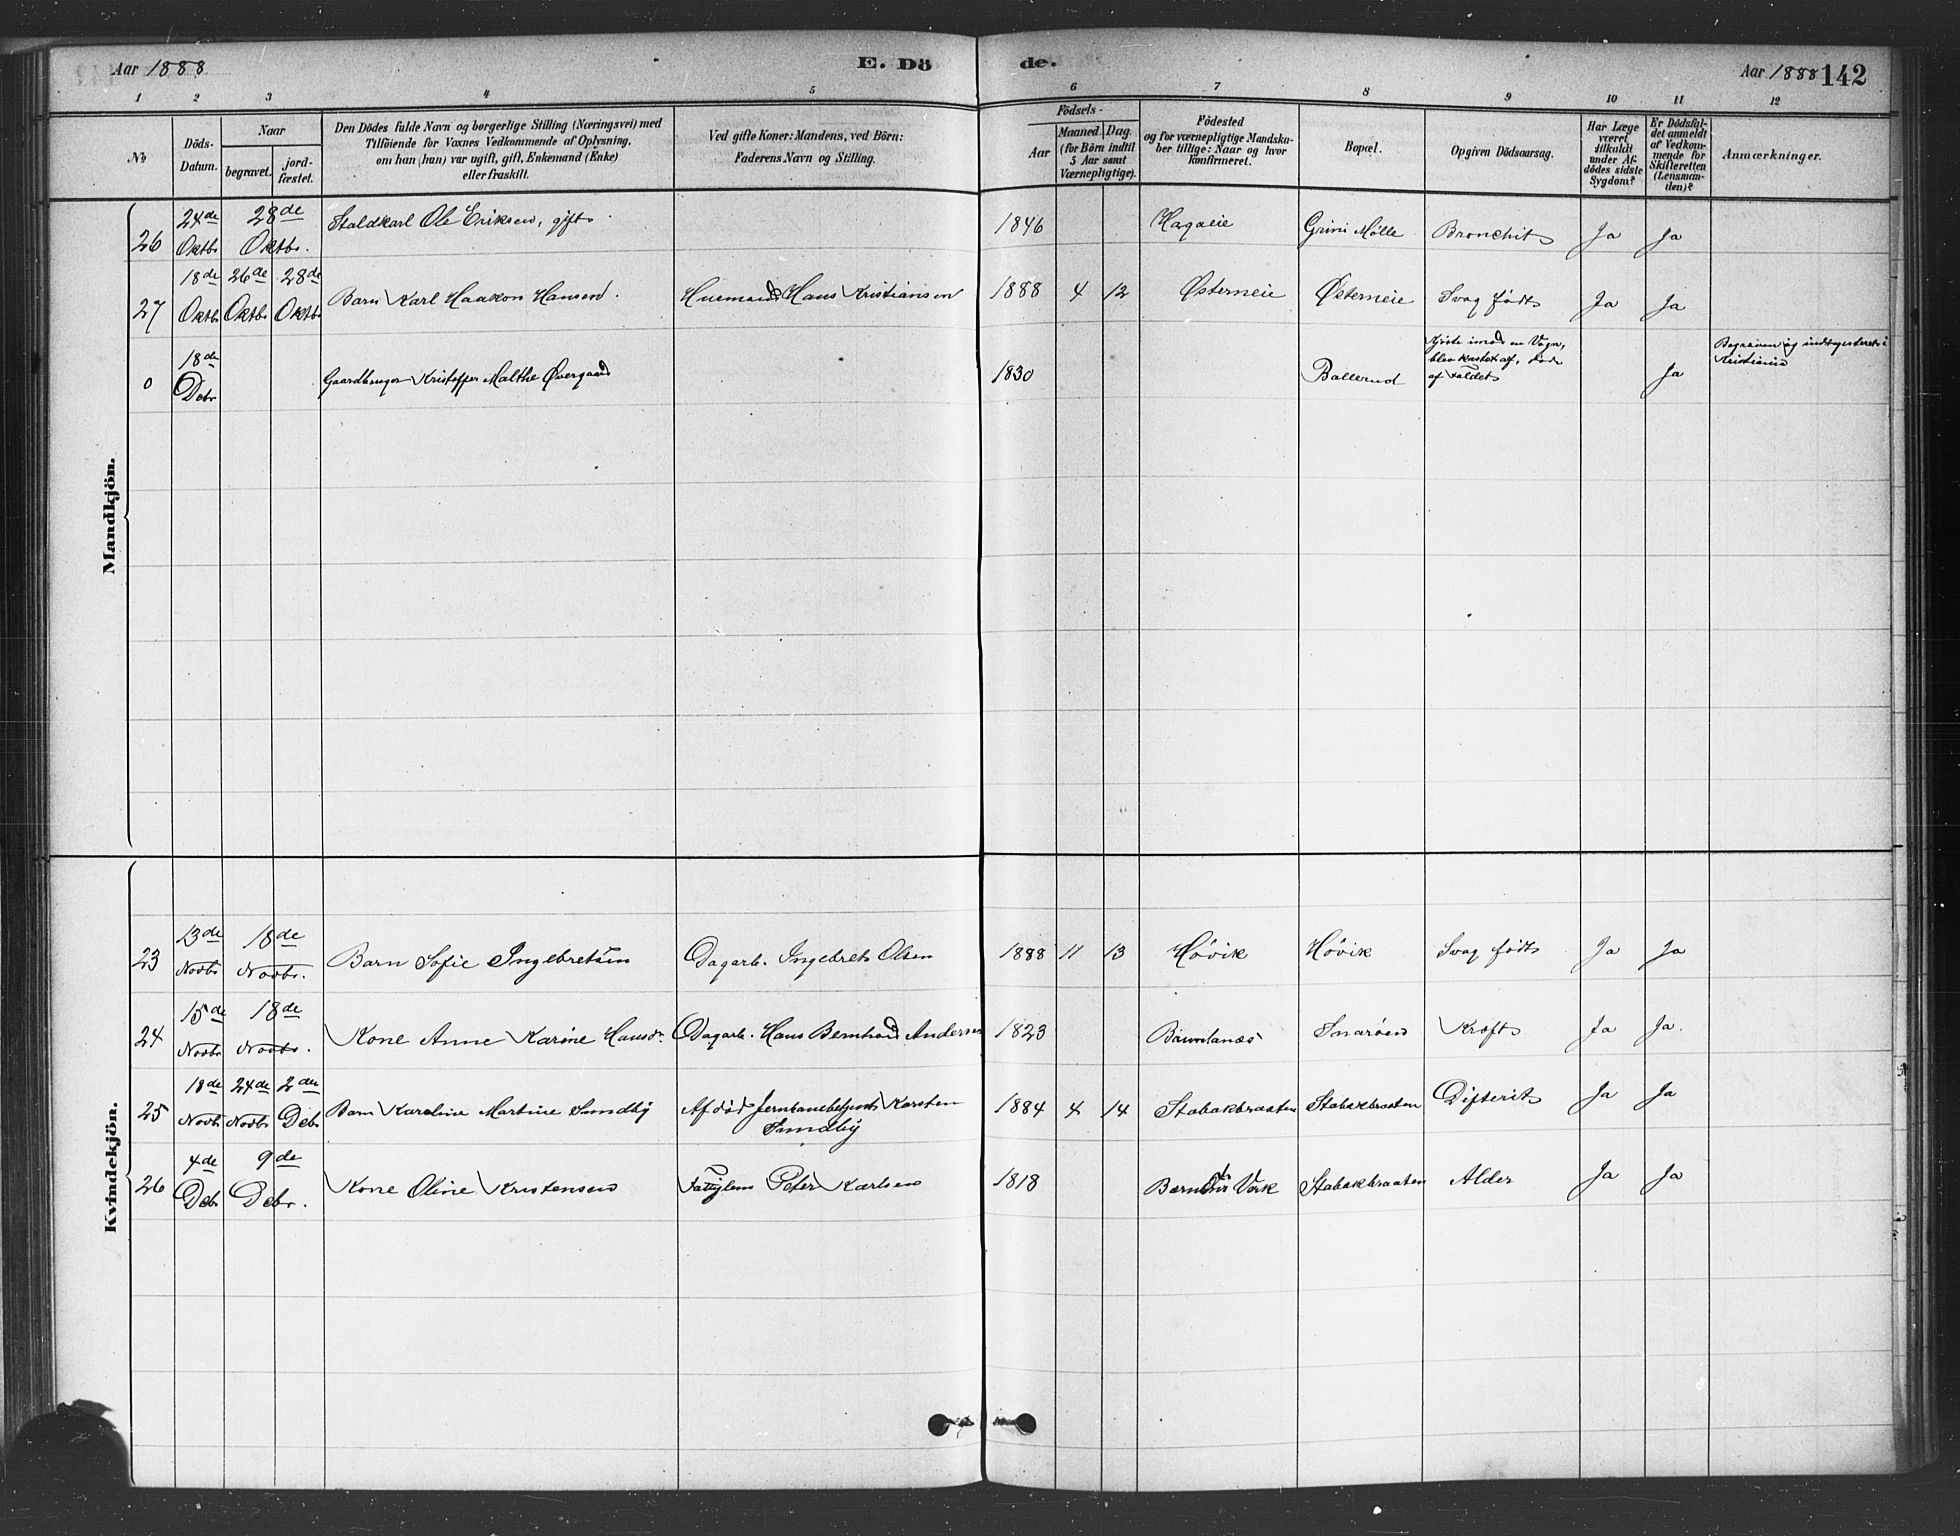 Aar 1888
E. Dö
de.
Aar 1888 142
1 2 3 4 5 6 7 8 9 10 11 12
No
Döds-
Datum.
Naar
begravet.
jord-
fæstet.
Den Dödes fulde Navn og borgerlige Stilling (Næringsvei) med
Tilföiende for Voxnes Vedkommende af Oplysning,
om han (hun) var ugift, gift, Enkemand (Enke)
eller fraskilt.
Ved gifte Koner: Mandens, ved Börn:
Faderens Navn og Stilling.
Födsels-
Aar
Maaned. Dag.
(for Börn indtil
5 Aar samt
Værnepligtige).
Födested
og for værnepligtige Mandska-
ber tillige: Naar og hvor
konfirmeret.
Bopæl.
Opgiven Dödsaarsag.
Har Læge
været
tilkaldt
under Af-
dödes sidste
Sygdom?
Er Dödsfal-
det anmeldt
af Vedkom-
mende for
Skifteretten
(Lensman-
den)?
Anmærkninger.
Mandkjön.
26 24de Oktbr 28de Oktbr. Staldkarl Ole Eriksen, gift 1846 Hagaeie Grini Mølle Bronchit Ja Ja
27 18de Oktbr 26de Oktbr 28de Oktbr Barn Karl Haakon Hansen. Huemand Hans Kristiansen 1888 4 12 Østerneie Østerneie Svag født Ja Ja
0 18de Debr Gaardbruger Kristoffer Malthe Øvergaard 1830 Ballerud Kjørte imod en Vogn,
blev kastet af, døde
af Faldet Ja Begraven og indtegnet i
Kristiania
Kvindekjön.
23 13de Novbr 18de Novbr. Barn Sofie Ingebretsen Dagarb. Ingebret Olsen 1888 11 13 Høvik Høvik Svag født Ja Ja
24 15de Novbr 18de Novbr. Kone Anne Karine Hansdr Dagarb. Hans Bernhard Andersen 1823 Snarøen Kræft Ja Ja.
25 18de Novbr 24de Novbr 2den Debr Barn Karoline Martine Sundby Afdød Jernbanebetjent Karsten
Sundby 1884 4 14 Stabækbraaten Stabækbraaten Difterit Ja Ja
26 4de Debr 9de Debr. Kone Oline Kristensen Fattiglem Peter Karlsen 1818 Bærums Værk Stabækbraaten Alder Ja Ja